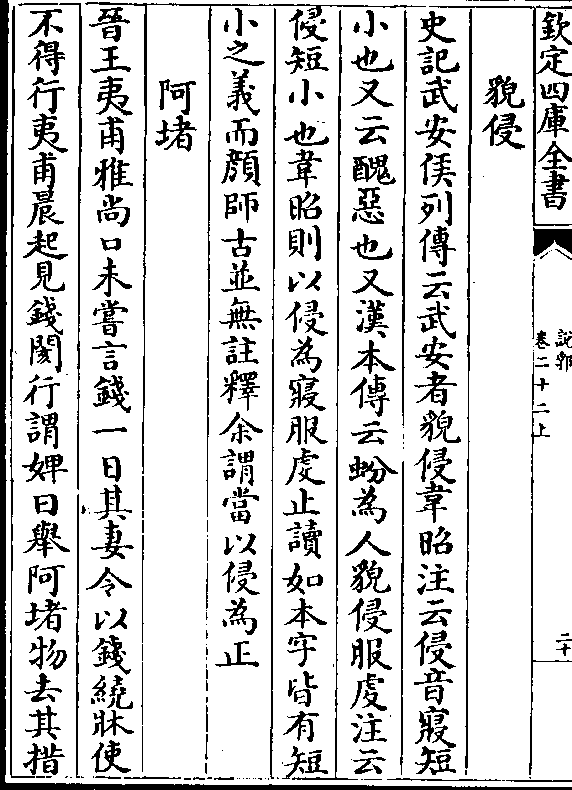 欽定四庫全書
說郛
卷二十二上
二十
貌侵
史記武安侯列傳云武安者貌侵韋昭注云侵音寢短
小也又云醜惡也又漢本傳云蚡為人貌侵服虔注云
侵短小也韋昭則以侵為寢服虔止讀如本字皆有短
小之義而顔師古並無註釋余謂當以侵為正
阿堵
晉王夷甫雅尚口未嘗言錢一日其妻令以錢繞牀使
不得行夷甫晨起見錢閡行謂婢曰舉阿堵物去其措